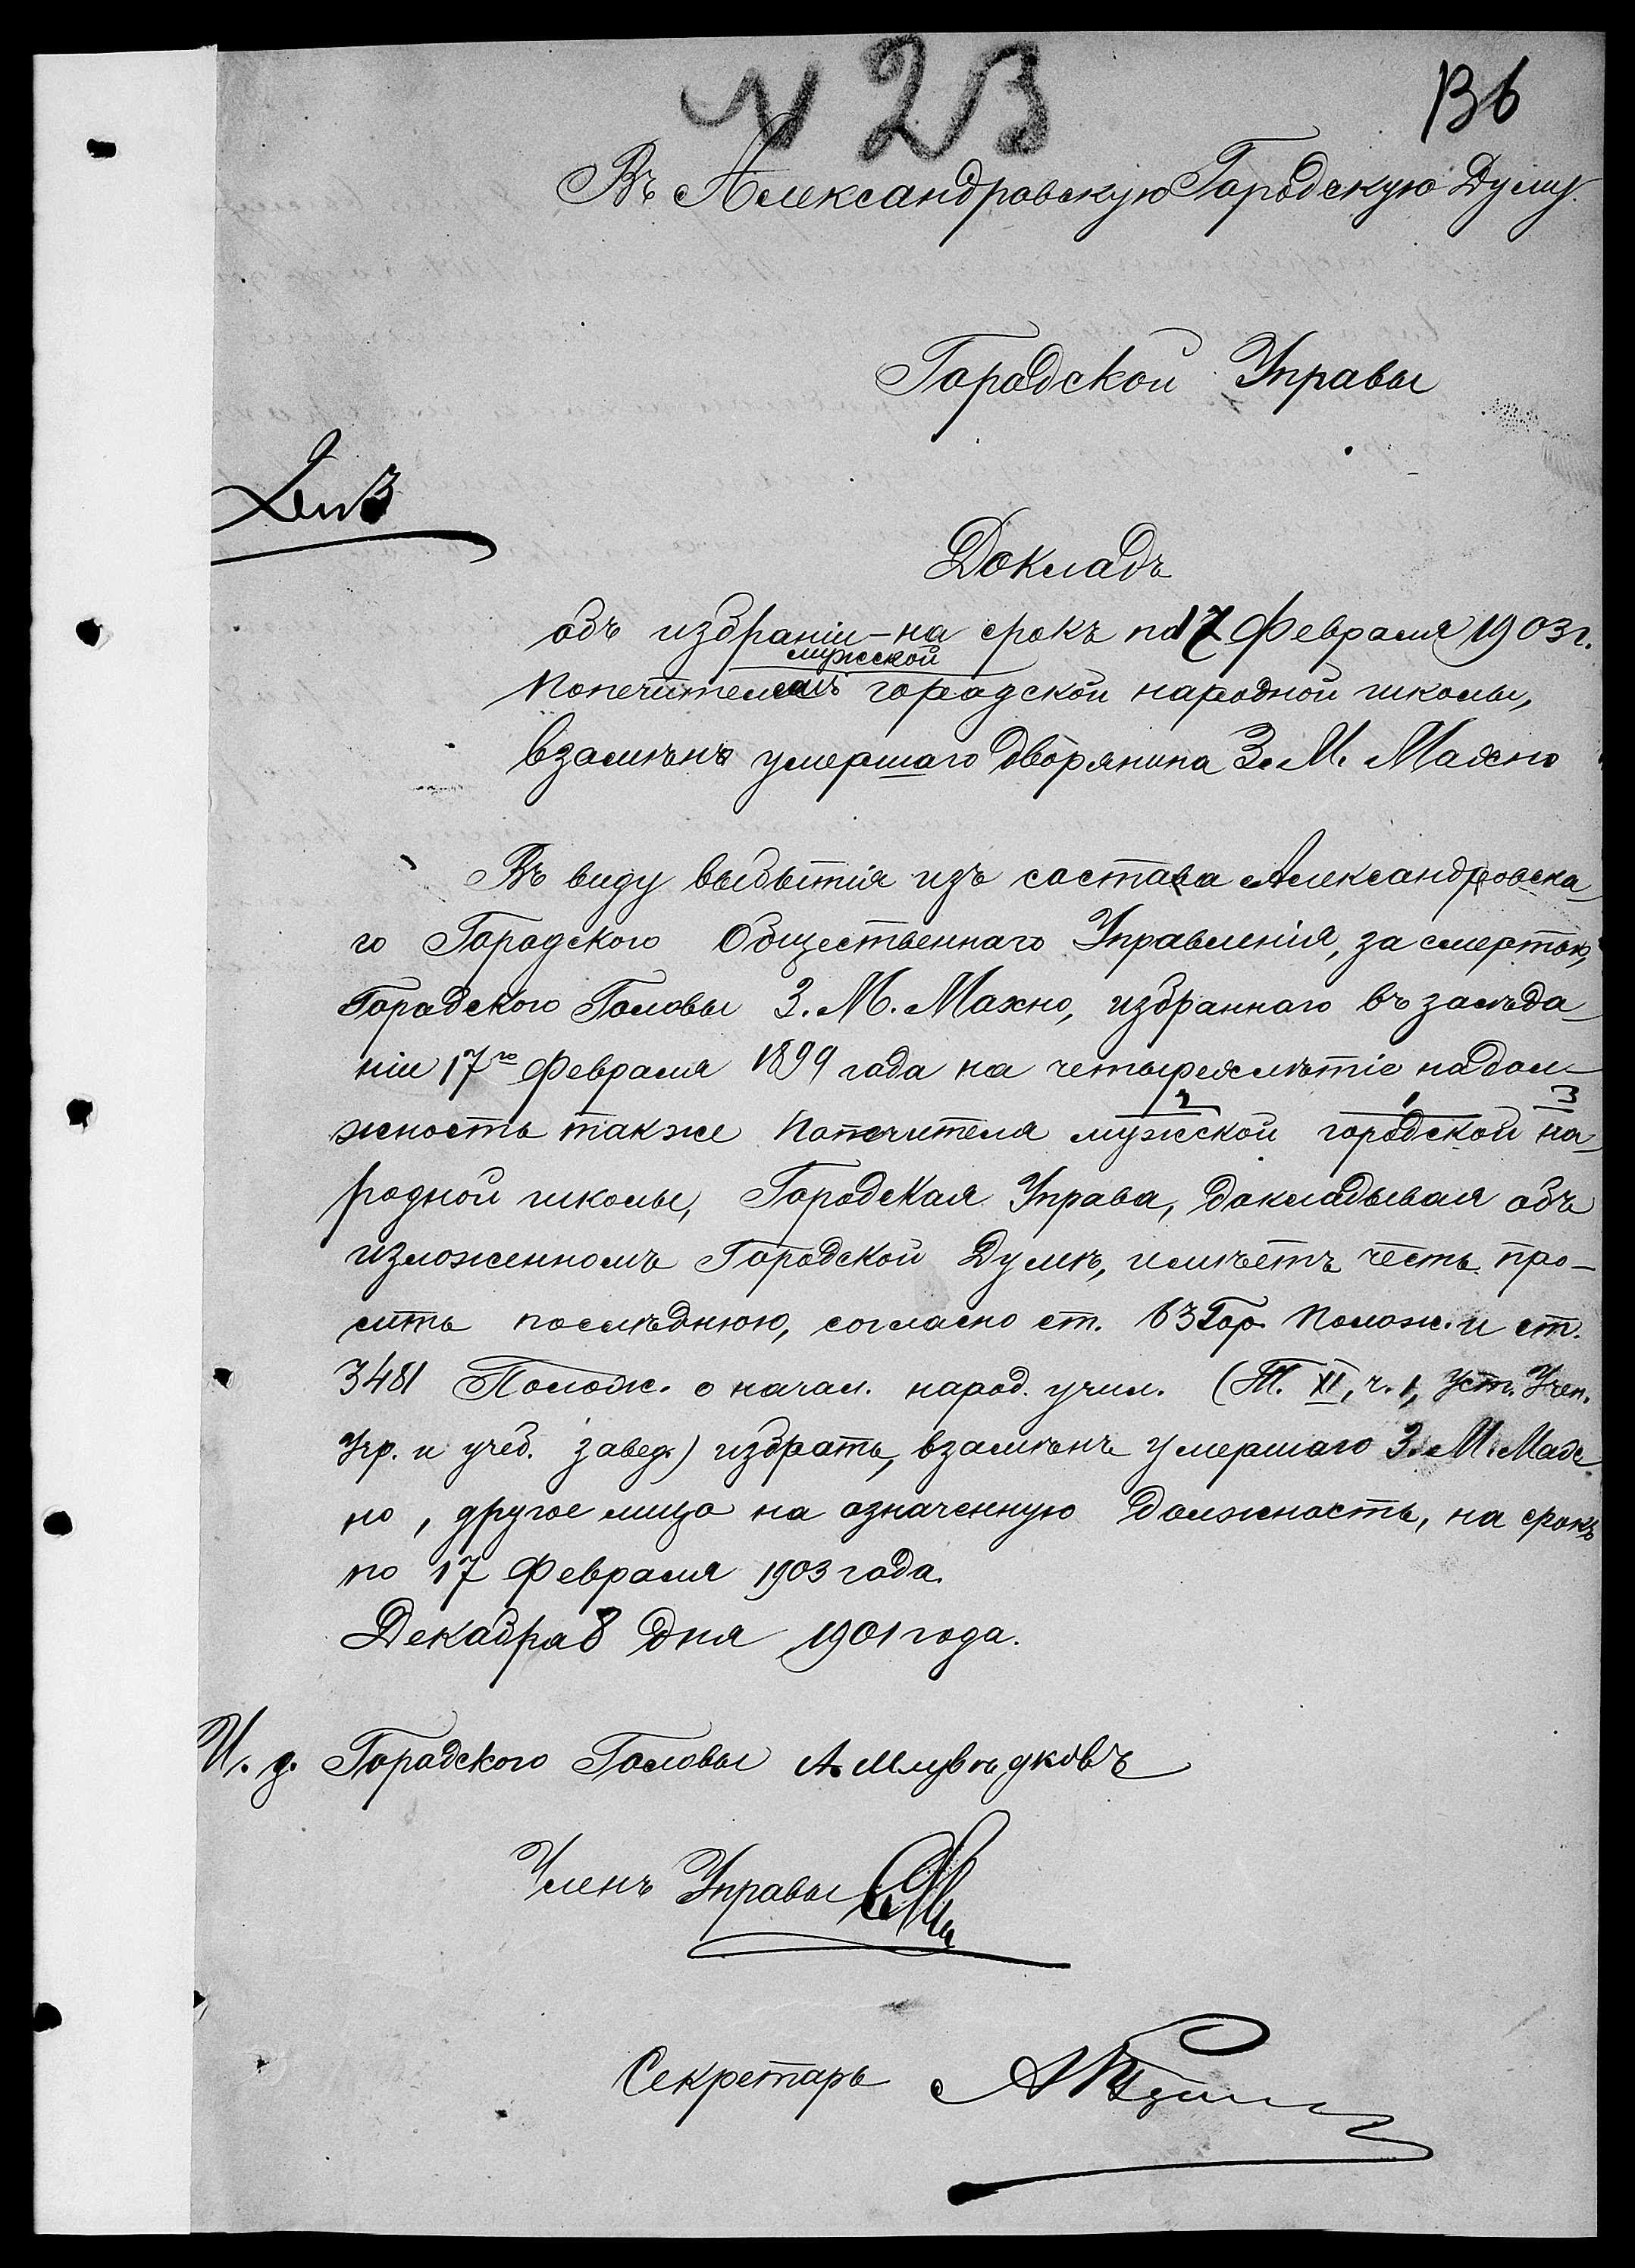 N 23
136
Въ Александровскую Городскую Думу.
Городской Управы
Докладъ
объ избраніи - на срокъ по 17 Февраля 1903 г.
мужской
попечителемъ городской народной школы,
взамѣнъ умершаго дворянина З. М. Махно
Въ виду выбытія изъ состава Александровска-
го Городского Общественнаго Управленія, за смертью,
Городского Головы З. М. Махно, избраннаго въ засѣда-
ніи 17го Февраля 1899 года на четырехлѣтіе на дол-
2 1 3
жность также попечителя мужской городской на-
родной школы, Городская Управа, докладывая объ
изложенномъ Городской Думѣ, имѣетъ честь про-
сить послѣднюю, согласно ст. 63 Гор. Полож. и ст.
3481 Полож. о начал. народ. учил. (Т. XI, ч. 1, Уст. Учен.
Учр. и учеб. завед.) избрать, взамѣнъ умершаго З. М. Мах-
но, другое лицо на означенную должность, на срокъ
по 17 Февраля 1903 года.
Декабря 8 дня 1901 года.
И. д. Городского Головы А.
Членъ Управы
Секретарь